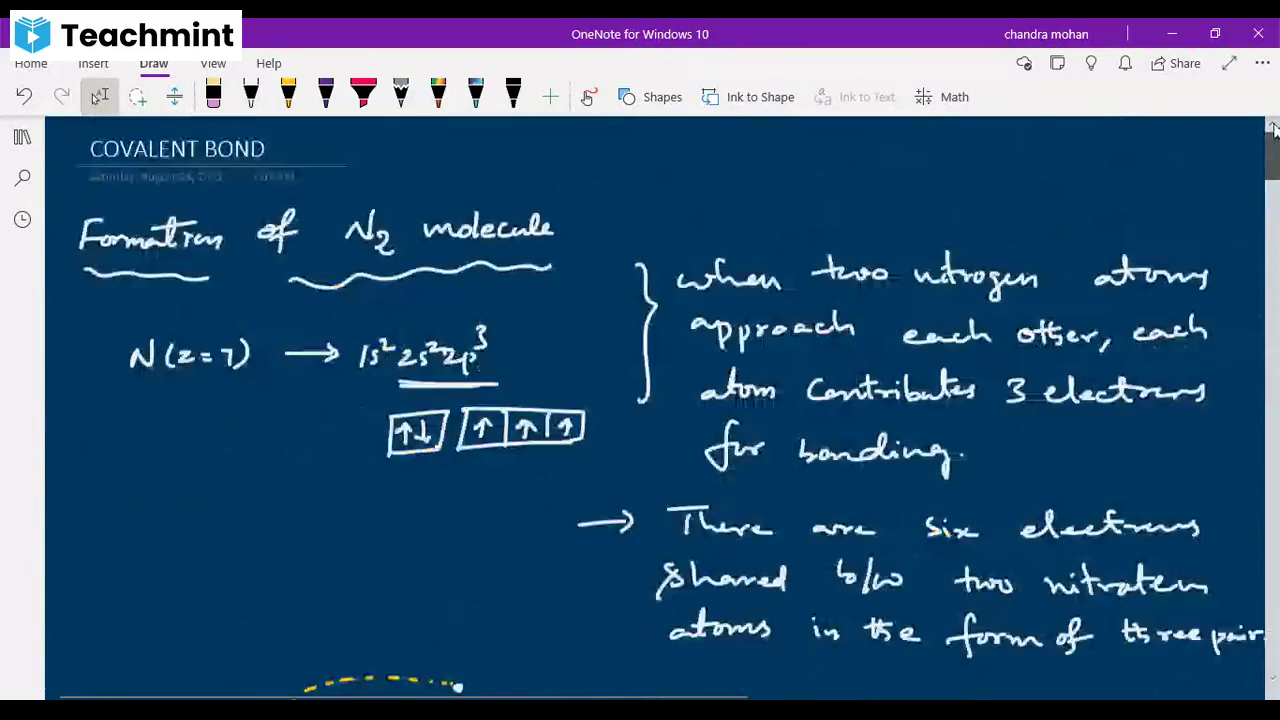 Teachmint
OneNote for Windows 10
chandra mohan
Home Insert Draw View Help
Share
Shapes Ink to Shape Ink to Text Math
COVALENT BOND
Formation of N2 molecule
N(z=7) → 1s² 2s² 2p³
↑↓ ↑ ↑ ↑
when two nitrogen atoms
approach each other, each
atom contributes 3 electrons
for bonding.
→ There are six electrons
shared b/w two
atoms in the form of three pair